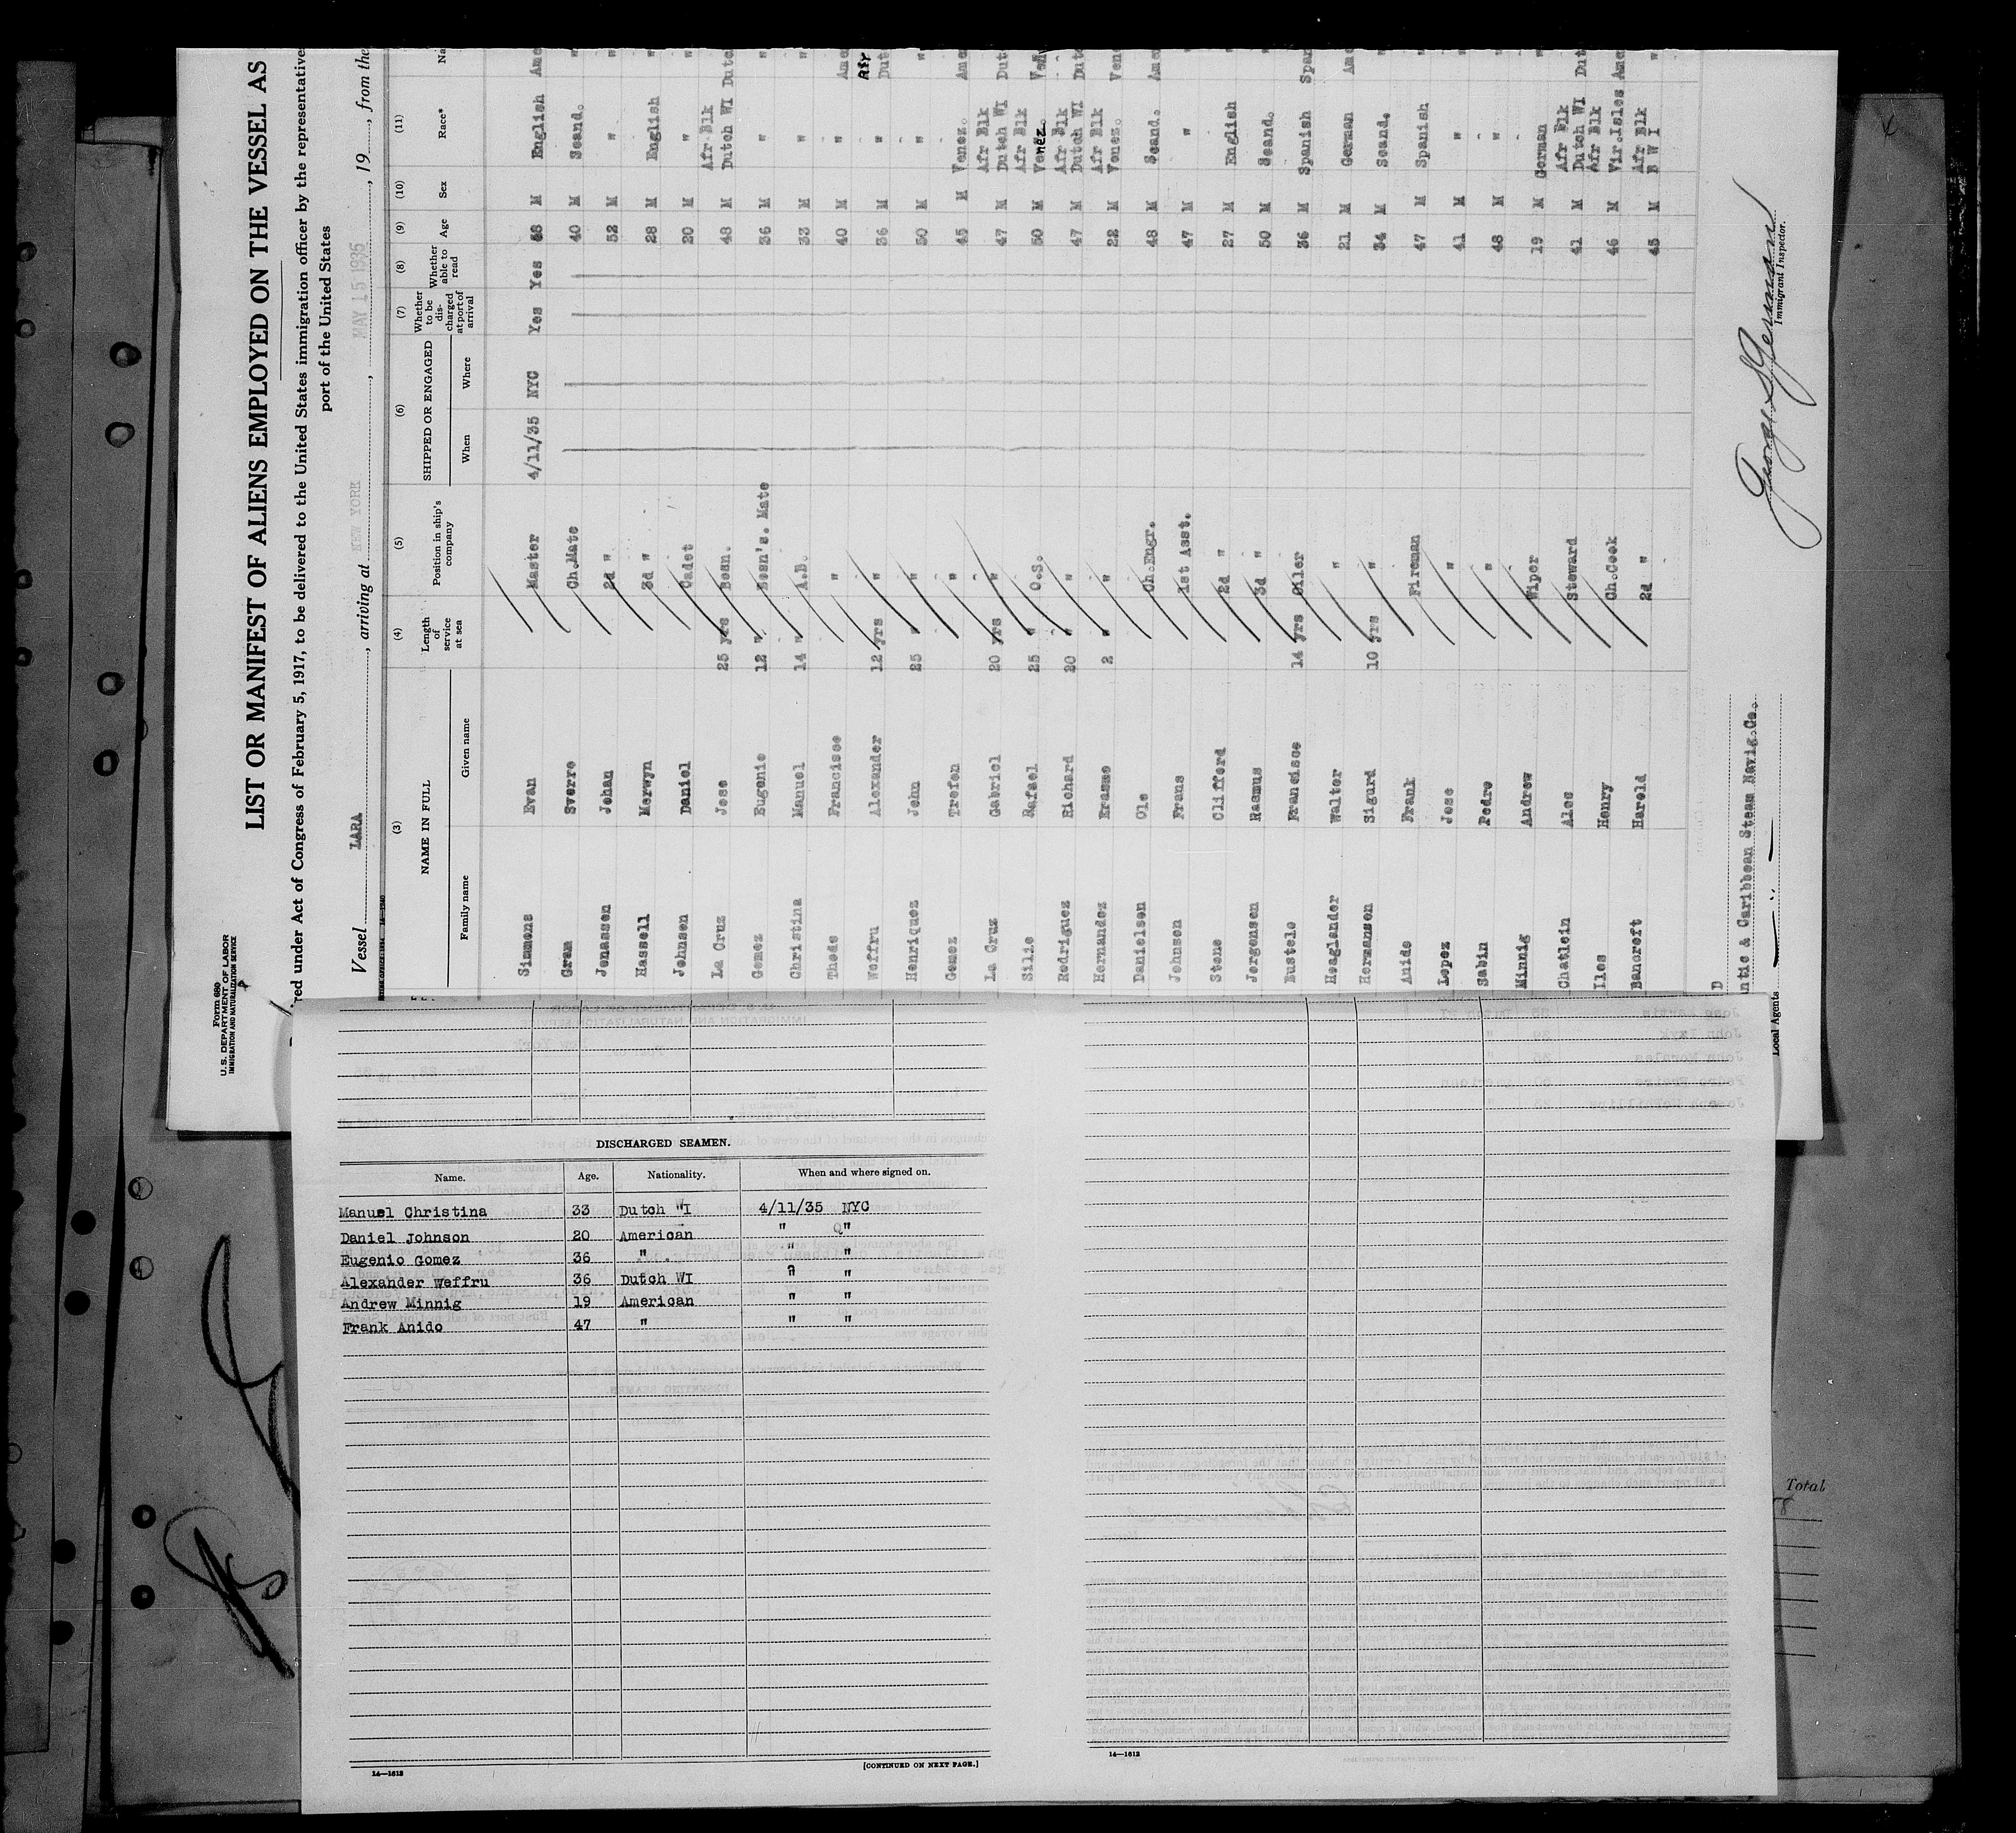 Form 680
U. S. DEPARTMENT OF LABOR
IMMIGRATION AND NATURALIZATION SERVICE
LIST OR MANIFEST OF ALIENS EMPLOYED ON THE VESSEL AS
red under Act of Congress of February 5, 1917, to be delivered to the United States immigration officer by the representative
port of the United States
Vessel LARA, arriving at NEW YORK, MAY 15 1935, 19, from the
(3) (4) (5) (6) (7) (8) (9) (10) (11)
NAME IN FULL Length of service at sea Position in ship's company SHIPPED OR ENGAGED Whether to be discharged at port of arrival Whether able to read Age Sex Race* Na
Family name Given name When Where
Simmons Evan Master 4/11/35 NYC Yes Yes M English Ame
Gram Sverre Ch.Mate 40 M Scand. "
Jonassen Johan 2d " 52 M " "
Hassell Merwyn 3d " 28 M English "
Johnson Daniel Cadet 20 M " "
La Cruz Jose 25 yrs Bosn. 48 M Afr Blk Dutch WI Dutc
Gomez Eugenio 12 " Bosn's. Mate 36 M " "
Christina Manuel 14 " A.B. 33 M " "
Thode Francisco " 40 M " Ame
Weffru Alexander 12 yrs " 36 M " Afr Dut
Henriquez John 25 " " 50 M " "
Gomez Trofon " 45 M Venez. Ame
La Cruz Gabriel 20 yrs " 47 M Afr Blk Dutch WI Dut
Silie Rafael 25 " O.S. 50 M Afr Blk Venez. Ven
Rodriguez Richard 20 " " 47 M Afr Blk Dutch WI Dut
Hernandez Erasmo 2 " " 22 M Afr Blk Venez. Ven
Danielsen Ole Ch.Engr. 48 M Scand. Ame
Johnsen Frans 1st Asst. 47 M " "
Stone Clifford 2d " 27 M English "
Jorgensen Rasmus 3d " 50 M Scand. "
Bustelo Francisco 14 yrs Oiler 36 M Spanish Span
Hoaglander Walter " 21 M German Ame
Hermansen Sigurd 10 yrs " 34 M Scand. "
Anido Frank Fireman 47 M Spanish "
Lopez Jose " 41 M " "
Sabin Pedro " 48 M " "
Minnig Andrew Wiper 19 M German "
Chatlein Alec Steward 41 M Afr Blk Dutch WI Dut
Iles Henry Ch.Cook 46 M Afr Blk Vir.Isles Ame
Bancroft Harold 2d " 45 M Afr Blk B W I "
D
ntic & Caribbean Steam Navig.Co.
Local Agents
Immigrant Inspector.
DISCHARGED SEAMEN.
Name. Age. Nationality. When and where signed on.
Manuel Christina 33 Dutch WI 4/11/35 NYC
Daniel Johnson 20 American " "
Eugenio Gomez 36 " " "
Alexander Weffru 36 Dutch WI " "
Andrew Minnig 19 American " "
Frank Anido 47 " " "
14—1612
[CONTINUED ON NEXT PAGE.]
14—1612
Total